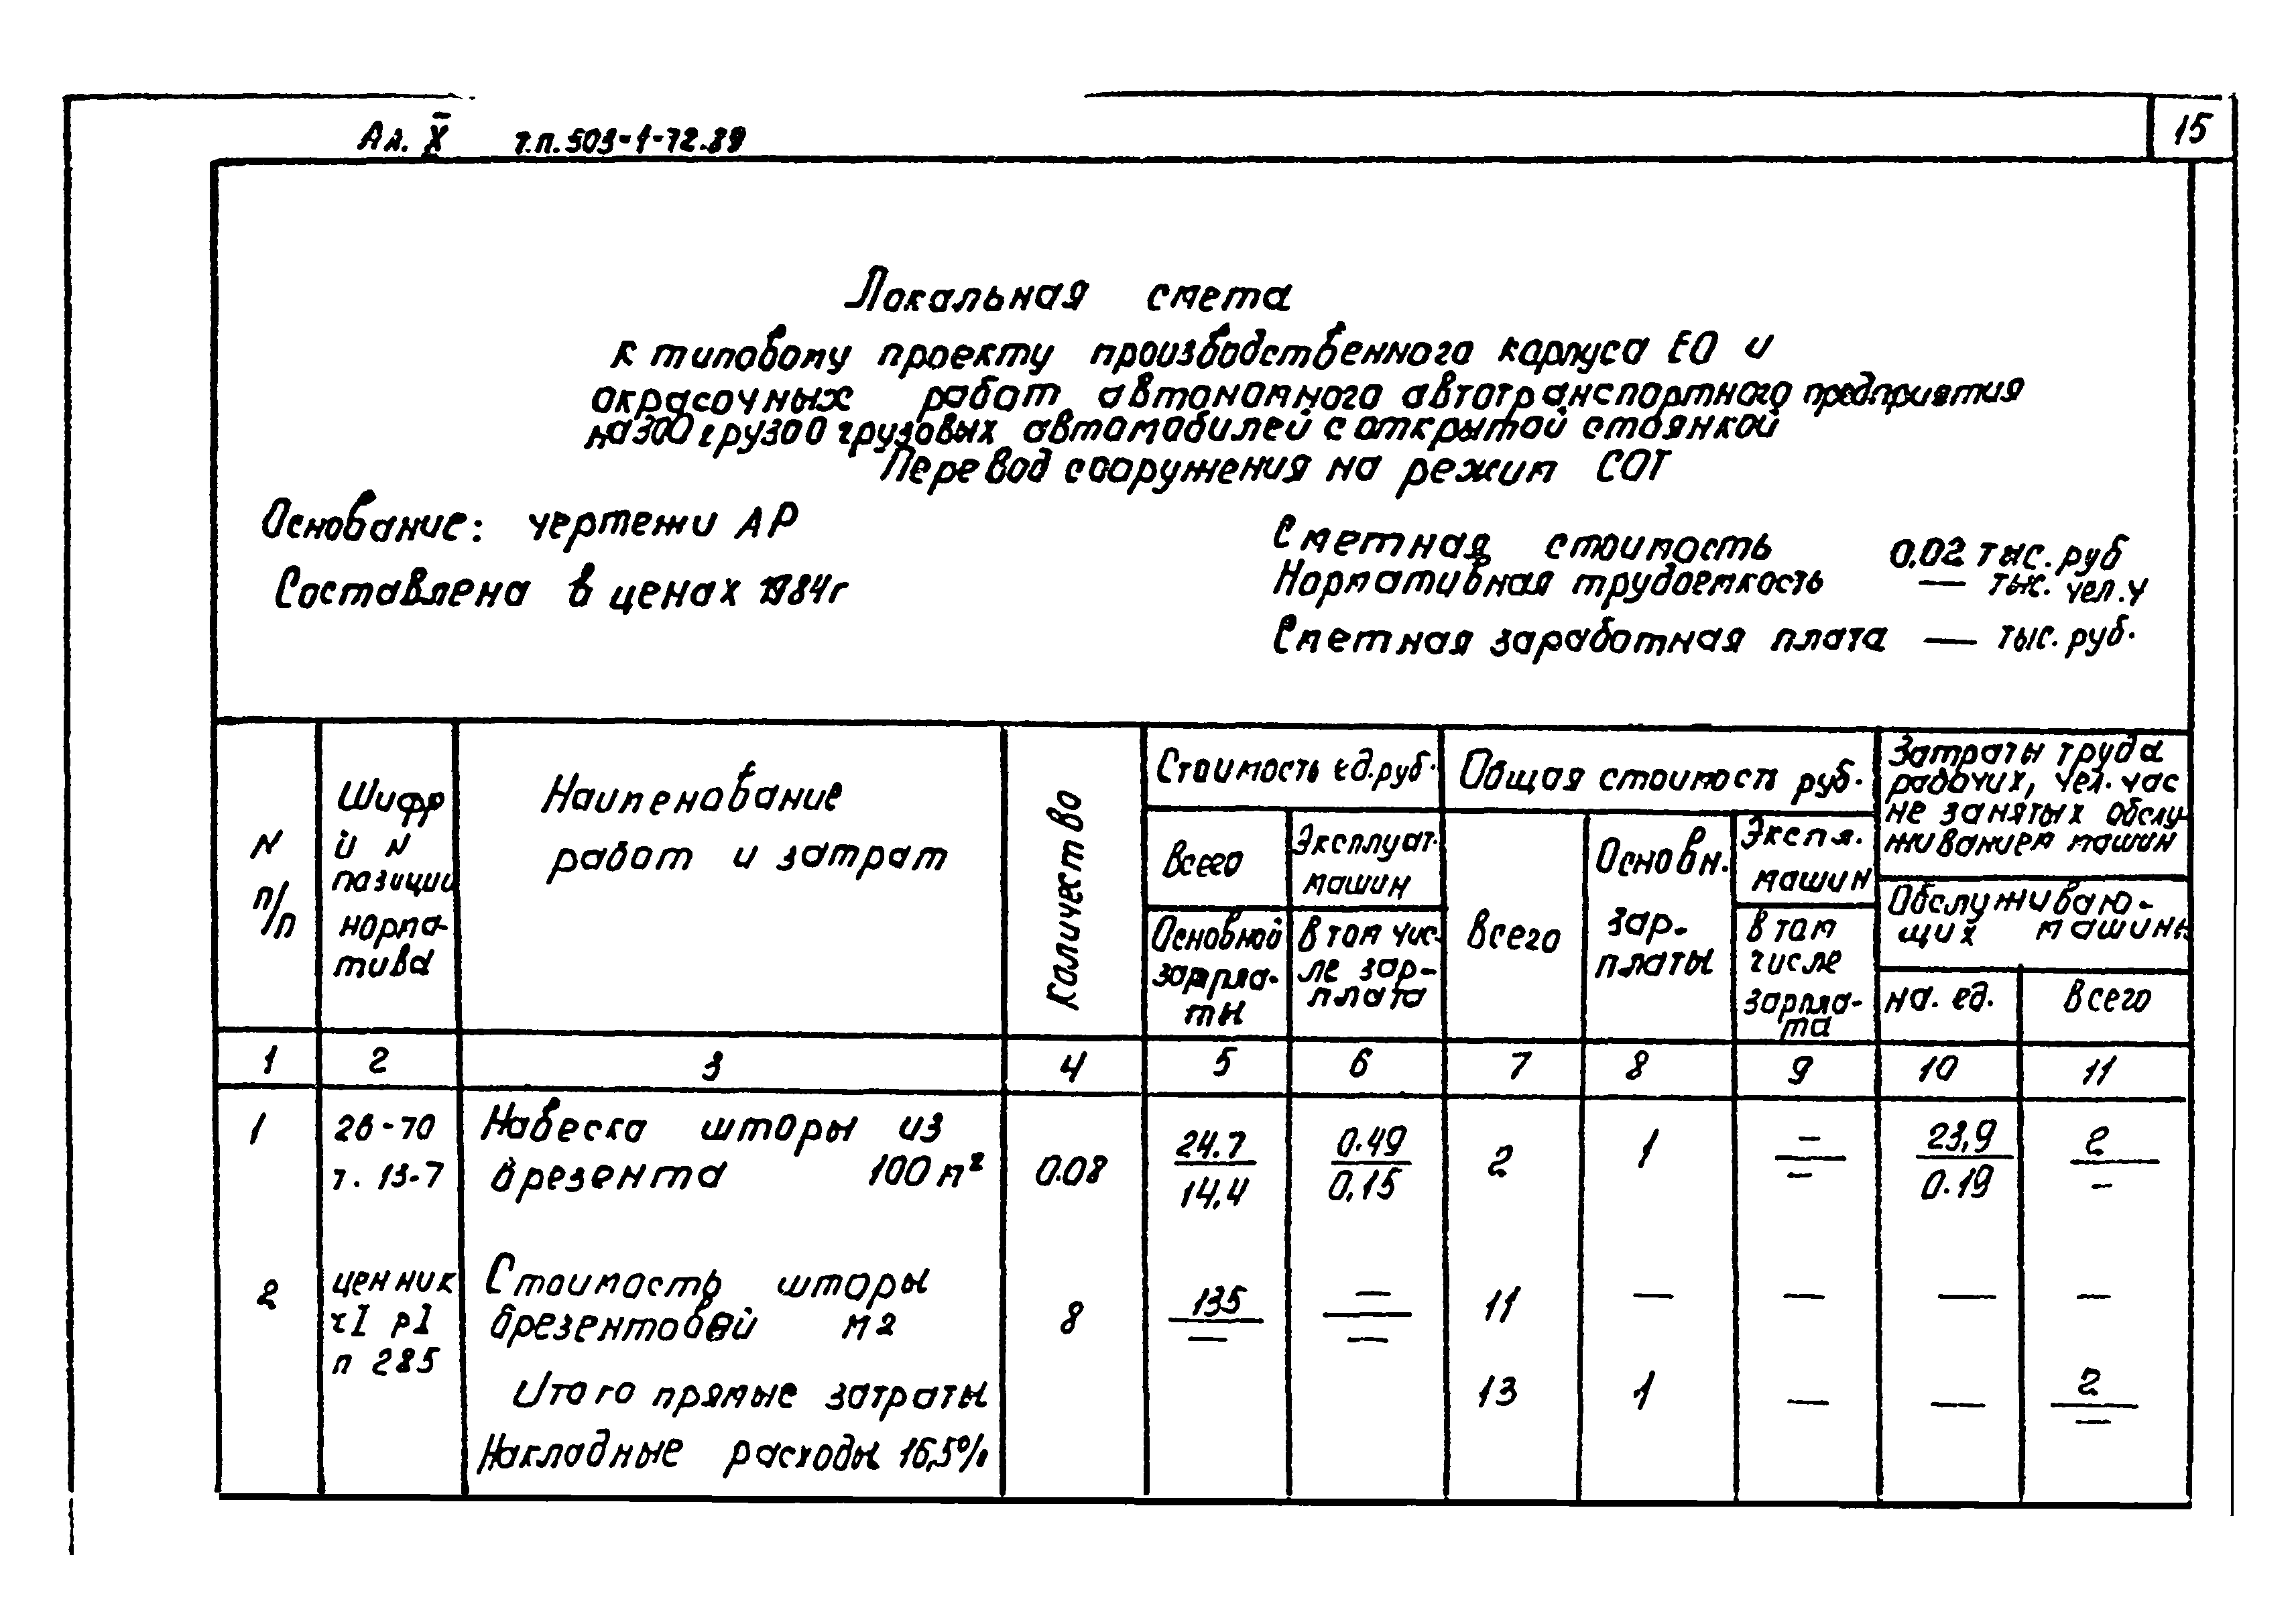 Ал. X т.п. 503-1-72.89
15
Локальная смета
к типовому проекту производственного корпуса ЕО и
окрасочных работ автономного автотранспортного предприятия
на 300 грузо 0 грузовых автомобилей с открытой стоянкой
Перевод сооружения на режим СОТ
Основание: чертежи АР
Составлена в ценах 1984г
Сметная стоимость 0,02 тыс. руб
Нормативная трудоемкость — тыс. чел.ч
Сметная заработная плата — тыс. руб.
N п/п
Шифр и N позиции норма-тива
Наименование работ и затрат
Количество
Стоимость ед.руб.
Всего
Эксплуат. машин
Основной зарпла-ты
В том чис-ле зар-плата
Общая стоимость руб.
Всего
Основн. зар-платы
Экспл. машин
В том числе зарпла-та
Затраты труда рабочих, чел.час не занятых обслу-живанием машин
Обслуживаю-щих машины
на. ед.
Всего
1 2 3 4 5 6 7 8 9 10 11
1 26-70 Навеска шторы из 24.7 0.49 2 1 – 23,9 2
т. 13-7 брезента 100 м² 0.08 14,4 0,15 – 0.19 –
2 ценник Стоимость шторы 135 — 11 — — — —
ч I р1 брезентовой м2 8 — —
п 285
Итого прямые затраты 13 1 — — 2 —
Накладные расходы 16,5%